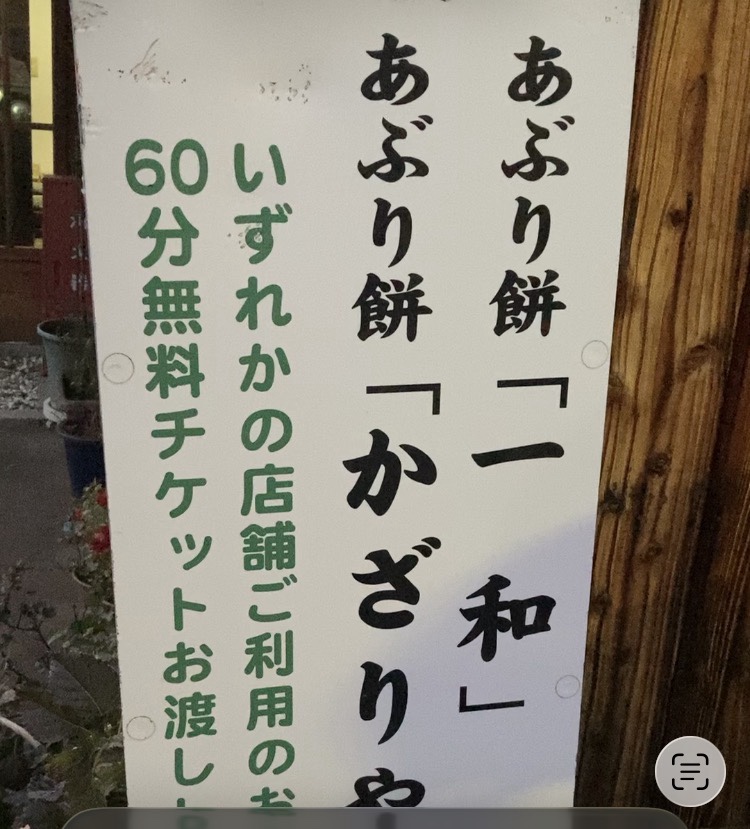 あぶり餅「一和」
あぶり餅「かざりや
いずれかの店舗ご利用のお
60分無料チケットお渡しし